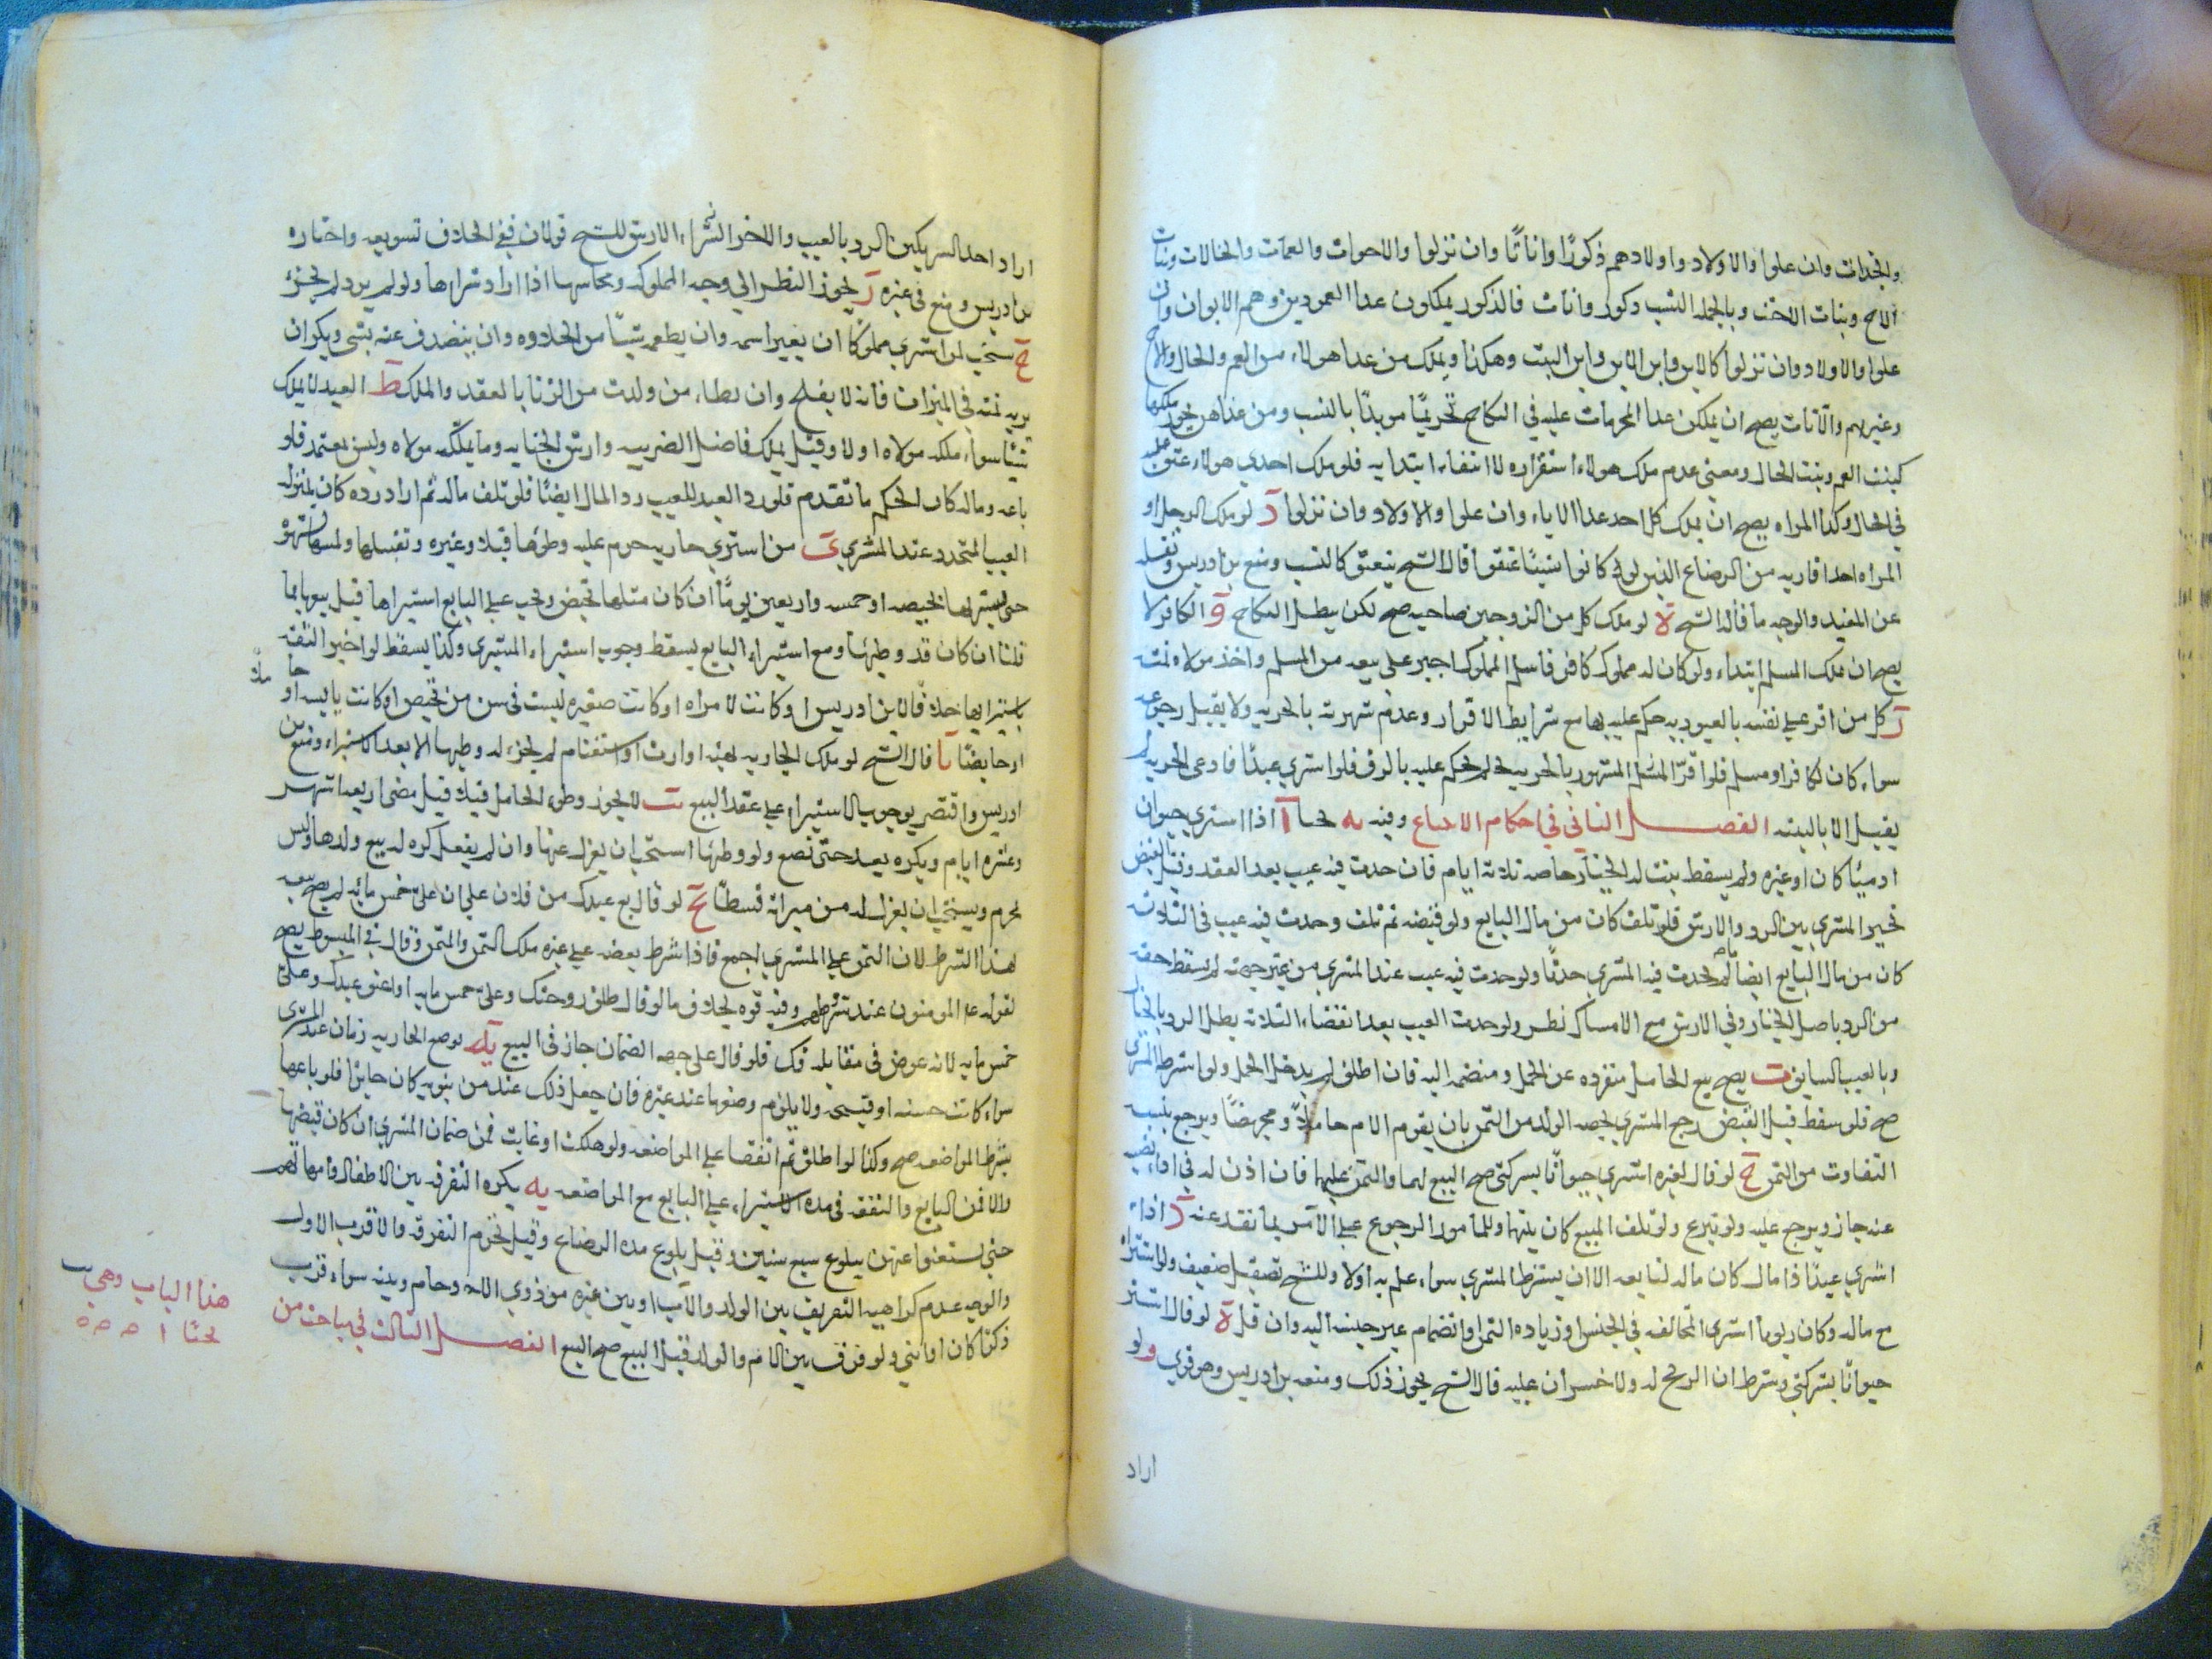 والجدات وان علوا والاولاد واولادهم ذكورًا واناثًا وان نزلوا والاخوات والعمات والخالات وبنات
الاخ وبنات الاخت وبالجملة النسب ذكور واناث فالذكور يملكون عدا العمودين وهم الابوان وان
علوا والاولاد وان نزلوا كالابن وابن الابن وابن البنت وهكذا ويملك من عدا هولاء من العم والخال والاخ
وغيرهم والاناث يصح ان يملكن عدا المحرمات عليه في النكاح تحريمًا موبدًا بالنسب ومن عداهن يجوز ملكها
كبنت العم وبنت الخال ومعنى عدم ملك هولاء استقراره لا انتفاء ابتدايه فلو ملك احدى هولاء عتق عليه
في الحال وكذا المراه يصح ان يملك كل احد عدا الاباء وان علوا والاولاد وان نزلوا د لو ملك الرجل او
المراه احد اقاربه من الرضاع الذين لو كانوا نسبًا عتقوا قال الشيخ ينعتق كالنسب ومنع بن ادريس ونقله
عن المفيد والوجه ما قاله الشيخ ة لو ملك كل من الزوجين صاحبه صح لكن يبطل النكاح و الكافر لا
يصح ان يملك المسلم ابتداء ولو كان له مملوك كافر فاسلم المملوك اجبر على بيعه من المسلم واخذ مولاه ثمنه
ز كل من اقر على نفسه بالعبوديه حكم عليه بها مع شرايط الاقرار وعدم شهرته بالحريه ولا يقبل رجوعه
سواء كان لكافر او مسلم فلو اقر المسلم المشهور بالحريه لم يحكم عليه بالرق فلو اشترى عبدًا فادعى الحريه لم
يقبل الا بالبينه الفصل الثاني في احكام الابتياع وفيه يه بحثا آ اذا اشترى حيوان
ادميًا كان او غيره ولم يسقط ثبت له الخيار خاصه ثلاثه ايام فان حدث فيه عيب بعد العقد وقبل القبض
تخير المشتري بين الرد والارش فلو تلف كان من مال البايع ولو قبضه ثم تلف وحدث فيه عيب في الثلاثه
كان من مال البايع ايضا ما لم يحدث فيه المشتري حدثًا ولو حدث فيه عيب عند المشتري من غير جهته لم يسقط حقه
من الرد باصل الخيار وفي الارش مع الامساك نظر ولو حدث العيب بعد انقضاء الثلاثه بطل الرد بالخيار
وبالعيب السابق ب يصح بيع الحامل منفرده عن الحمل ومنضمه اليه فان اطلق لم يدخل الحمل ولو اشترطه المشتري
صح فلو سقط قبل القبض رجع المشتري بحصه الولد من الثمن بان يقوم الام حاملاً ومجهضًا ويرجع بنسبه
التفاوت من الثمن ج لو قال لغيره اشتري حيوانًا بشركتي صح البيع لهما والثمن عليهما فان اذن له في اداء نصيبه
عنه جاز ويرجع عليه ولو تبرع ولو تلف المبيع كان بينهما وللمامور الرجوع على الامر بما نقد عنه د اذا
اشترى عبدًا ذا مال كان ماله لبايعه الا ان يشترط المشتري سواء علم به اولا وللشيخ تفصيل ضعيف ولو اشتراه
مع ماله وكان ربويا اشترى المخالفه في الجنس او زياده الثمن او انضمام غير جنسه اليه وان قل ة لو قال اشتر
حيوانًا بشركتي وشرط ان الربح له ولا خسران عليه قال الشيخ يجوز ذلك ومنعه بن ادريس وهو قوي و لو
اراد
اراد احد الشريكين الرد بالعيب والاخر الشراء الارش للشيخ قولان ففي الخلاف تسويغه واختاره
بن ادريس ومنع في غيره ز يجوز النظر الى وجه المملوكه ومحاسنها اذا اراد شراءها ولو لم يرد لم يجز
ح يستحب لمن اشترى مملوكًا ان يغير اسمه وان يطعمه شيئًا من الحلاوه وان يتصدق عنه بشي ويكره ان
يريه ثمنه في الميزان فانه لا يفلح وان يطاء من ولدت من الزنا بالعقد والملك ط العبد لا يملك
شيئًا سواء ملكه مولاه اولا وقيل يملك فاضل الضريبه وارش الجنايه وما يملكه مولاه وليس بمعتمد فلو
باعه وماله كان الحكم ما تقدم فلو رد العبد للعيب رد المال ايضًا فلو تلف ماله ثم اراد رده كان بمنزله
العيب المتجدد عند المشتري ي من اشترى جاريه حرم عليه وطؤها قبلا وغيره وتقبيلها ولمسها بشهوه
حتى يستبرئها بحيضه او خمسه واربعين يومًا ان كان مثلها تحيض ويجب على البايع استبراها قبل بيعها بما
قلنا ان كان قد وطيها ومع استبراء البايع يسقط وجوب استبراء المشتري وكذا يسقط لو اخبر الثقه
باستبرايها خلافًا لابن ادريس او كانت لامراه او كانت صغيره ليست في سن من تحيض او كانت يايسه او حا ملا
او حايضًا يا قال الشيخ لو ملك الجاريه بهبه او ارث او استغنام لم يجز له وطيها الا بعد الاستبراء ومنع بن
ادريس واقتصر بوجوب الاستبراء على عقد البيع يب لا يجوز وطي الحامل قبلا قبل مضى اربعه اشهر
وعشره ايام ويكره بعد حتى تضع ولو وطيها استحب ان يعزل عنها وان لم يفعل كره له بيع ولدها وليس
بمحرم ويستحب ان يعزل له من ميراثه قسطًا يج لو قال بع عبدك من فلان على ان على خمس مائه لم يصح بيعه
لهذا الشرط لان الثمن على المشتري اجمع فاذا شرط بعضه على غيره ملك الثمن والمثمن وقال في المبسوط يصح
لقوله ع المومنون عند شروطهم وفيه قوه بخلاف ما لو قال طلق زوجتك وعلي خمس مايه او اعتق عبدك وعلي
خمس مايه لانه عوض في مقابله فك فلو قال على جهه الضمان جاز في البيع يد يوضع الجاريه زمان عند المشتري
سواء كانت حسنه او قبيحه ولا يلزم وضعها عند غيره فان جعل ذلك عند من يثق به كان جايزا فلو باعها
بشرط المواضعه صح وكذا لو اطلق ثم اتفقا على المواضعه ولو هلكت او غابت فمن ضمان المشتري ان كان قبضها
والا فمن البايع والنفقه في مده الاستبراء على البايع مع المواضعه يه يكره التفرقه بين الاطفال وامهاتهم
حتى يستغنوا عنهن ببلوغ سبع سنين وقيل بلوغ مده الرضاع وقيل تحرم التفرقه والاقرب الاول
والوجه عدم كراهيه التفريق بين الولد والاب او بين غيره من ذوي الارحام وبينه سواء قرب
ذكرًا كان او انثى ولو فرق بين الام والولد قبل البيع صح البيع الفصل الثالث في مباحث من
هذا الباب وهي
بحثًا ا